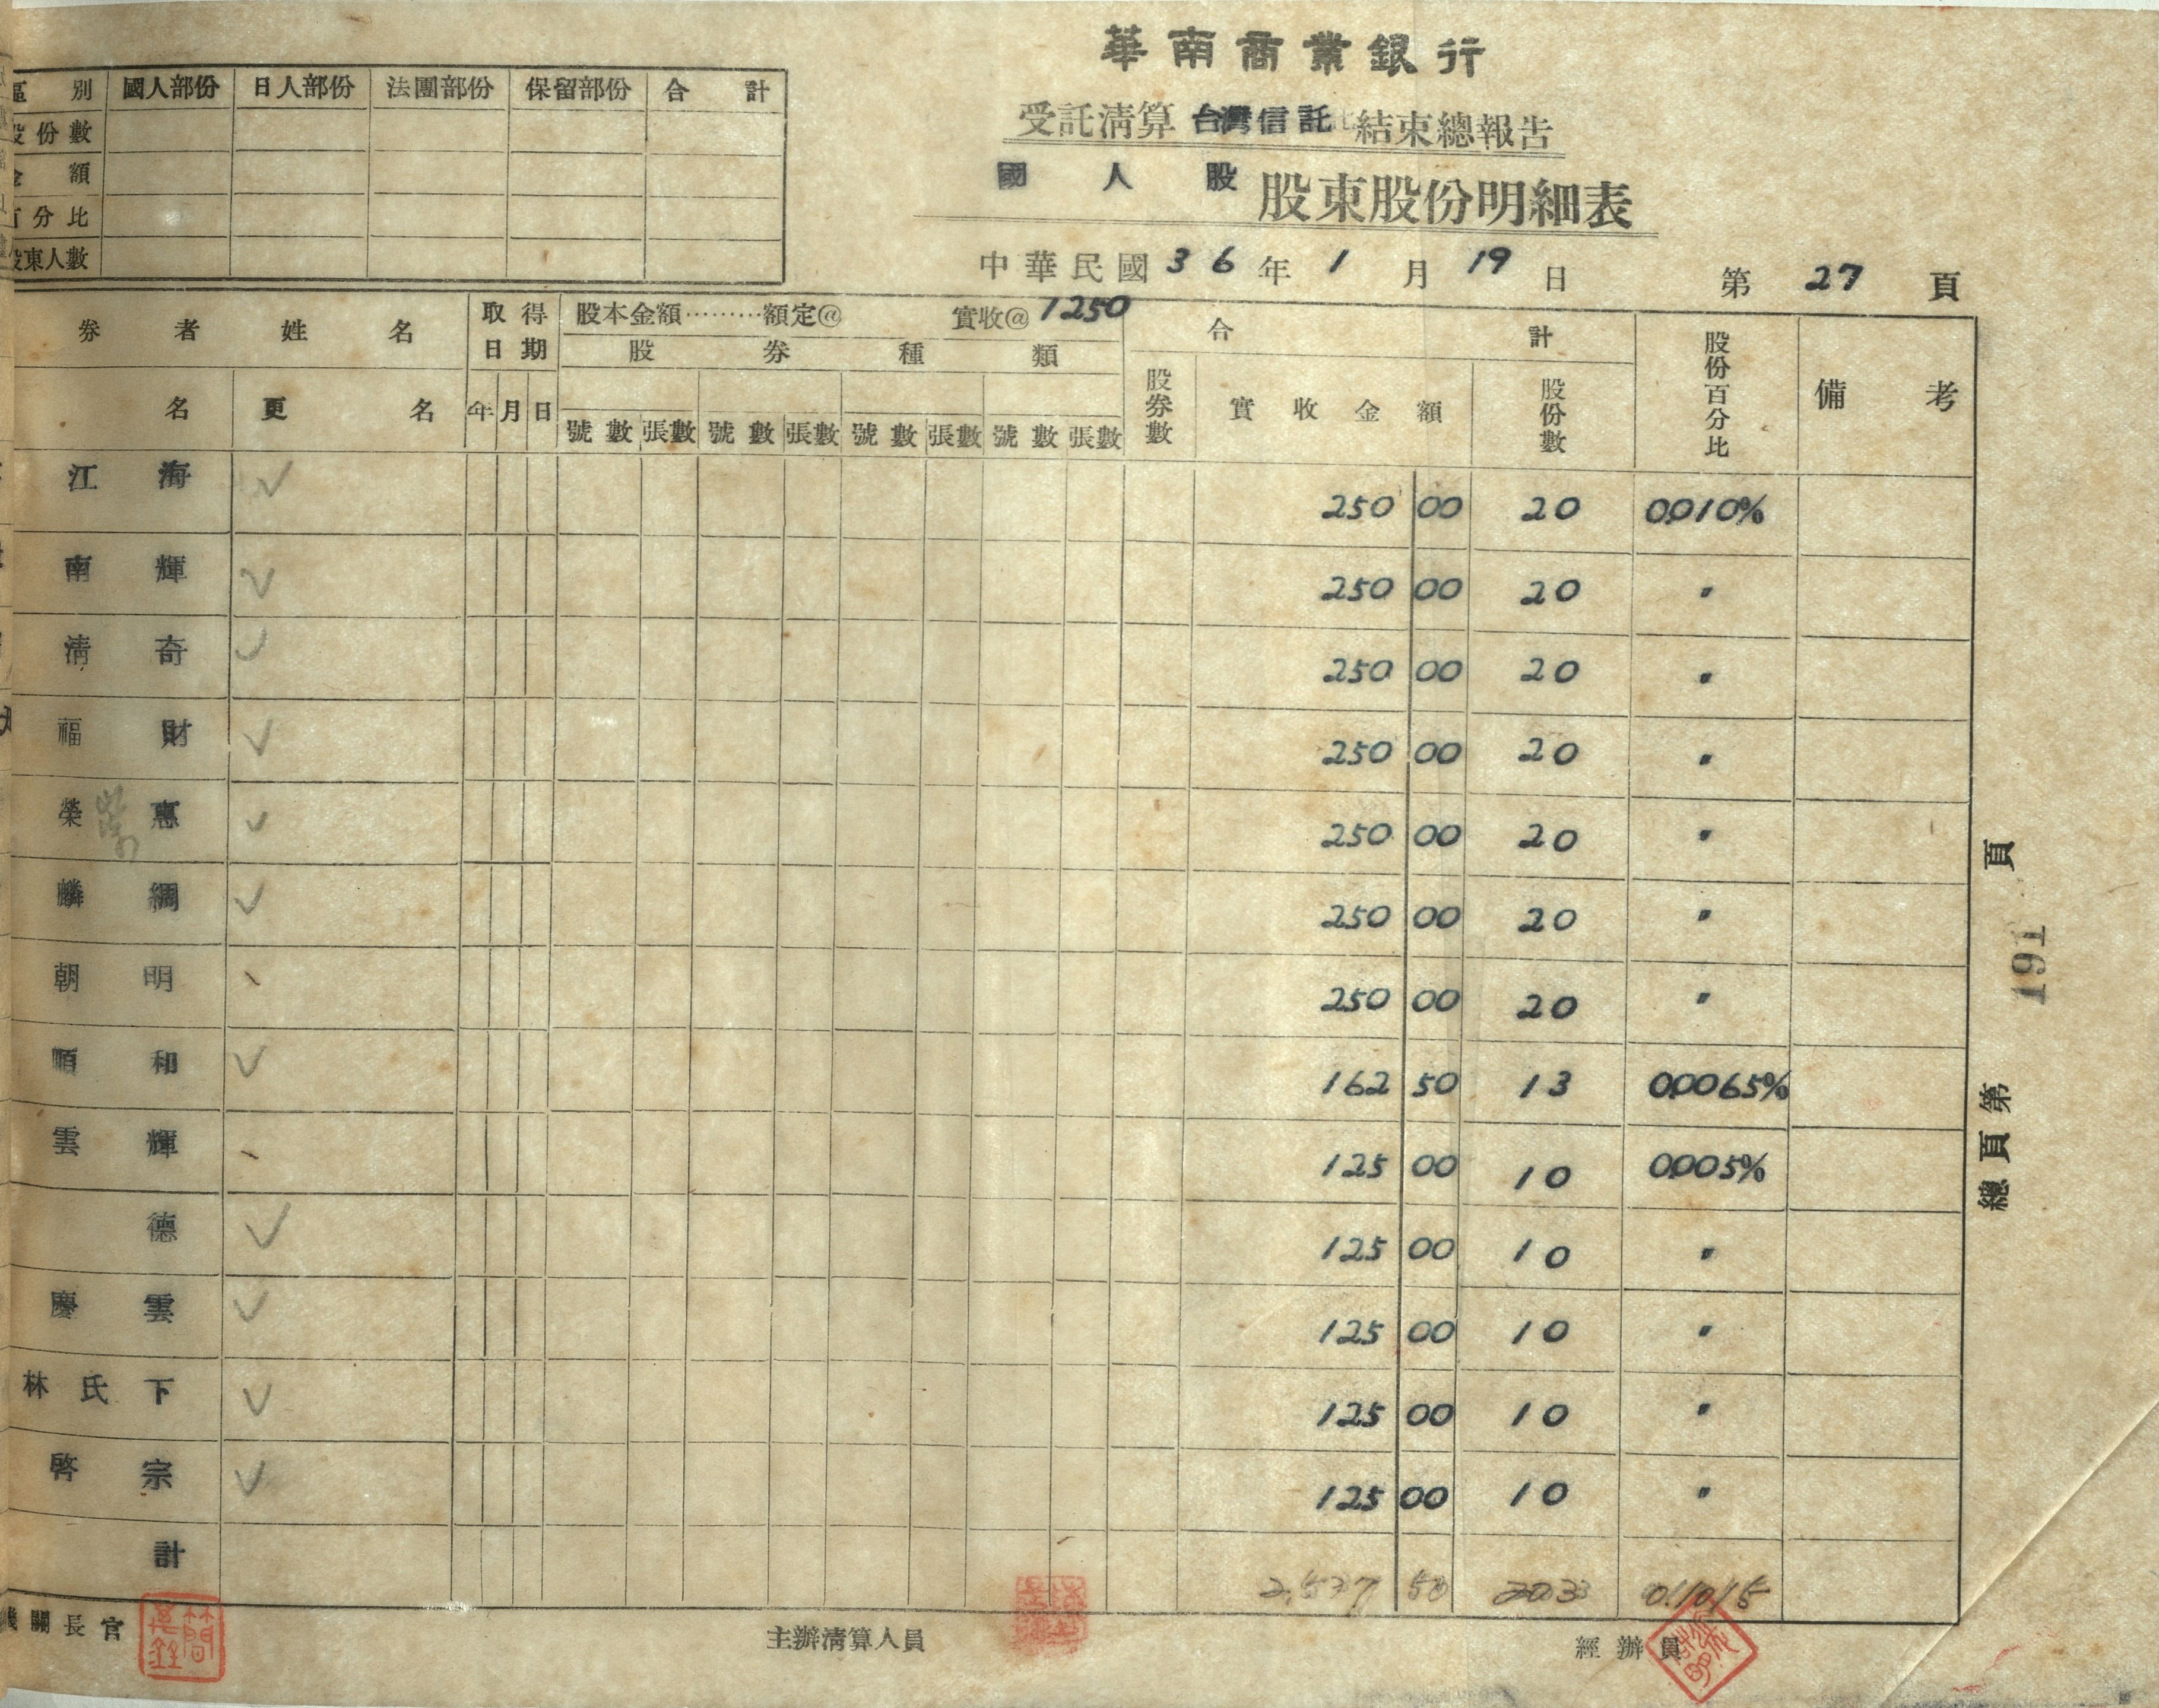 華南商業銀行
受託清算 台灣信託 結束總報告
國人股 股東股份明細表
中華民國36年1月19日 第27頁
區別 國人部份 日人部份 法團部份 保留部份 合計
股份數
金額
百分比
股東人數
券者姓名 取得日期 股本金額………額定@ 實收@1250 合計 股份百分比 備考
股券種類
名 更名 年 月 日 號數 張數 號數 張數 號數 張數 號數 張數 股券數 實收金額 股份數
江海 250 00 20 0.010%
南輝 250 00 20 〃
清奇 250 00 20 〃
福財 250 00 20 〃
榮惠 250 00 20 〃
麟綢 250 00 20 〃
朝明 250 00 20 〃
順和 162 50 13 0.0065%
雲輝 125 00 10 0.005%
德 125 00 10 〃
慶雲 125 00 10 〃
林氏下 125 00 10 〃
啓宗 125 00 10 〃
計 2,537 50 203 0.1015
機關長官 主辦清算人員 經辦員
總頁第 191 頁